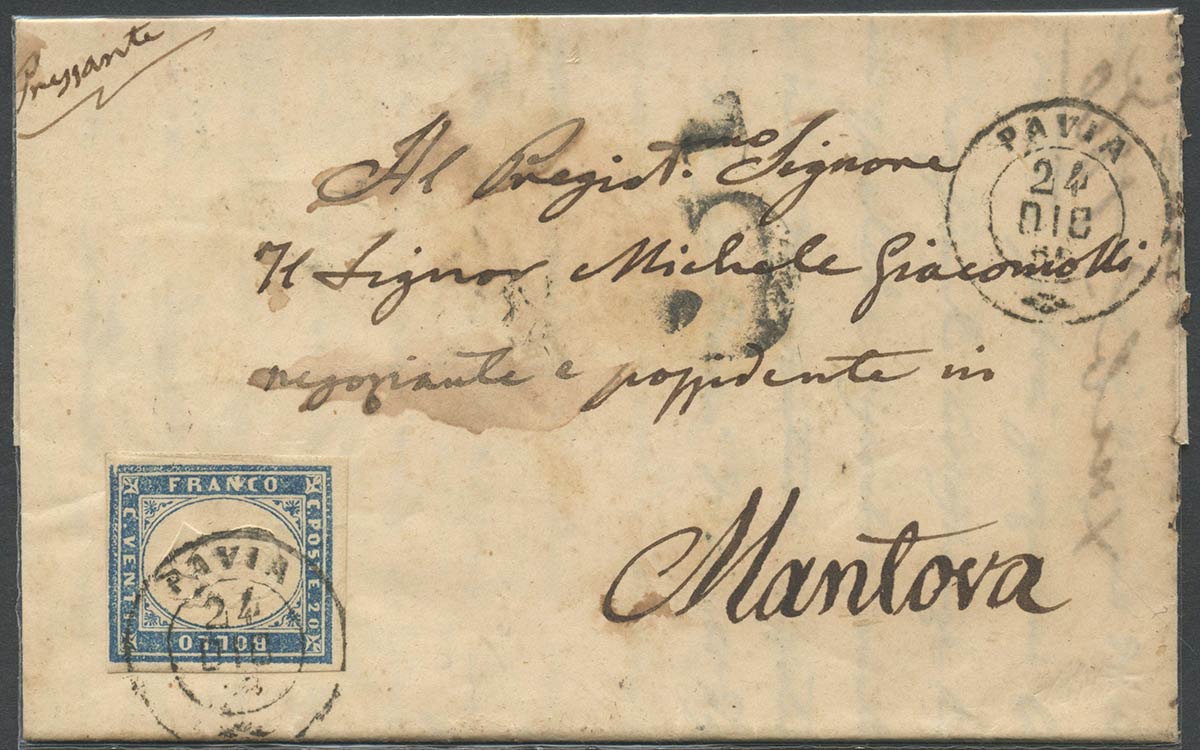 Pressante
Al Pregiat.mo Signore
Il Signor Michele Giacomolli
negoziante e possidente in
Mantova
PAVIA
24
DIC
5
FRANCO
C. POSTE 20
BOLLO
C. VENTI
PAVIA
24
DIC